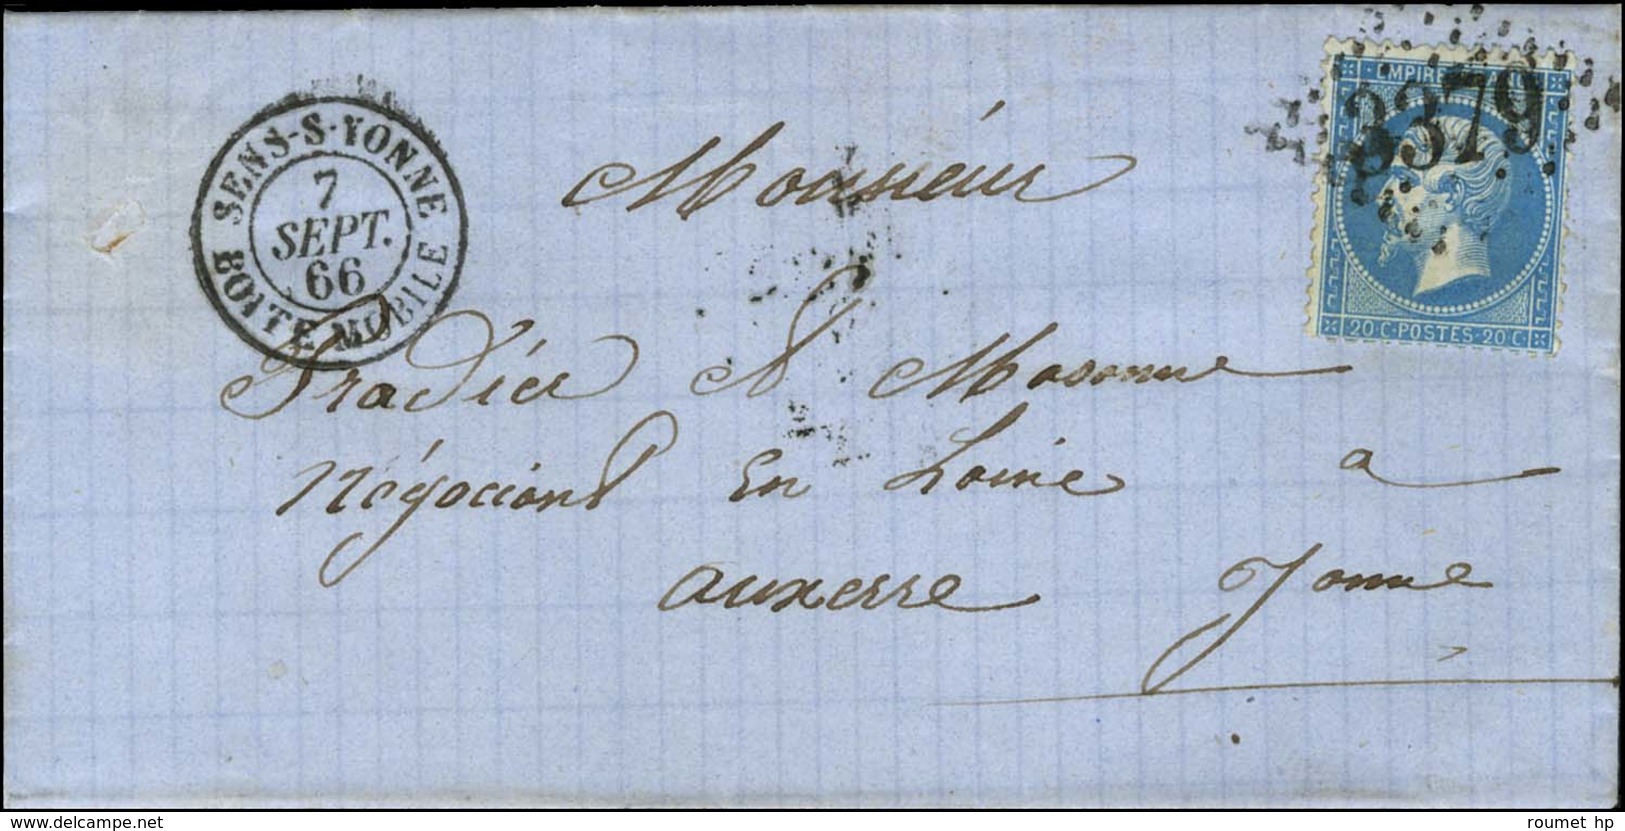 SENS-S-YONNE
7
SEPT.
66
BOITE MOBILE
EMPIRE FRANC
3379
20 C·POSTES·20 C
Monsieur
Pradier & Masonne
Négociant en Laine a
auxerre Yonne
www.delcampe.net
roumet hp